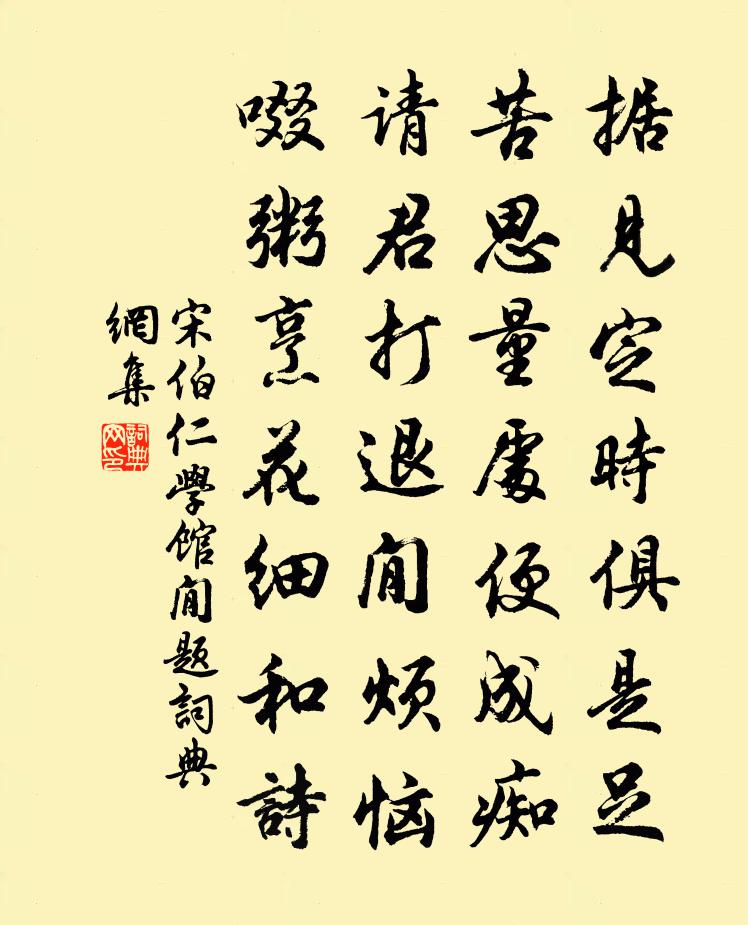 据見定時俱是足
苦思量處便成痴
请君打退閒烦恼
啜粥烹花细和詩
宋伯仁學馆閒题詞典
網集
詞典网印